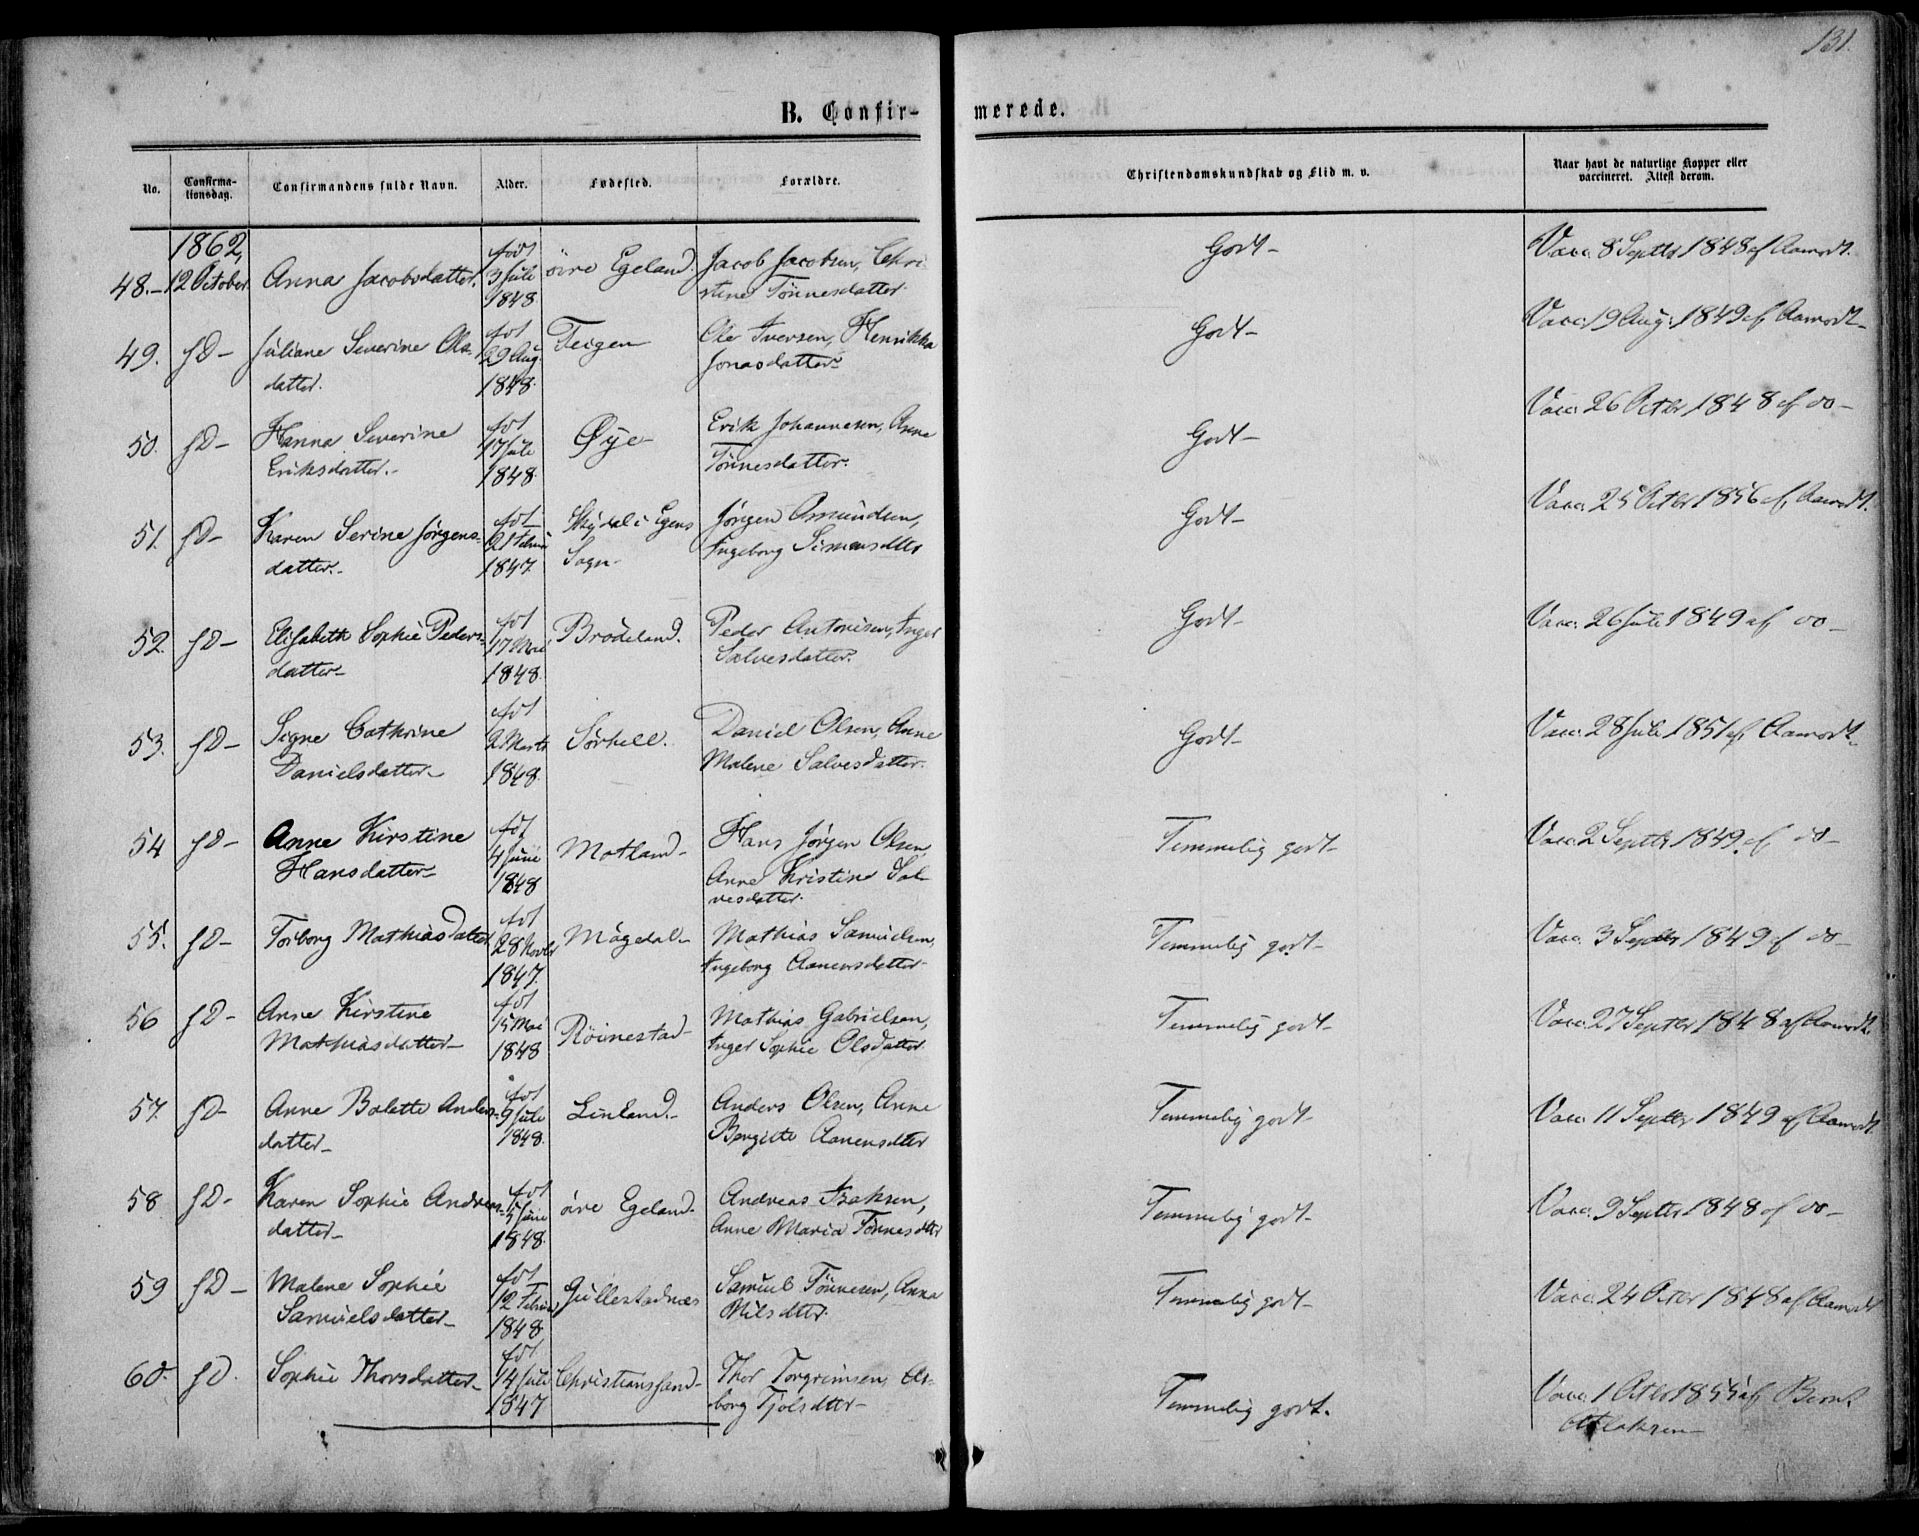 131.
B. Confir- merede.
No. Confirma-tionsdag. Confirmandens fulde Navn. Alder. Fødested. Forældre. Christendomskundskab og Flid m. v. Naar havt de naturlige Kopper eller vaccineret. Attest derom.
1862,
48.- 12 October Anna Jacobsdatter. født 3 Juli 1848 øvre Egeland. Jacob Jacobsen, Chri-stine Tønnesdatter. Godt- Vacc. 8 Septbr 1848 af Aamodt.
49. sD- Juliane Severine Ols-datter. føt 29 Aug. 1848. Teigen Ole Iversen, Henrikka Jonasdatter. Godt- Vacc. 19 Aug. 1849 af Aamodt-
50. sD- Hanna Severine Eriksdatter.- føt 17 Juli 1848 Øye- Erik Johannesen, Anne Tønnesdatter. Godt- Vacc. 26 Octbr 1848 af do-
51. sD- Karen Serine Jørgens-datter.- føt 21 Februar 1847. i Egens Sogn. Jørgen Amundsen, Ingeborg Simensdtter Godt- Vacc. 25 Octbr 1856 af Aamodt.
52. sD- Elisabeth Sophie Peders-datter- føt 17 Mai 1848 Brødeland. Peder Antonisen, Inger Salvesdatter. Godt- Vacc. 26 Juli 1849 af do-
53. sD- Signe Cathrine Danielsdatter- føt 2 Marts 1848. Sørhell. Daniel Olsen, Anne Malene Salvesdatter. Godt- Vacc. 28 Juli 1851 af Aamodt-
54 sD- Anne Kirstine Hansdatter- føt 4 Juni 1848 Motland- Hans Jørgen Olsen, Anne Kristine Sal-vesdatter. Temmelig godt- Vacc. 2 Septbr 1849. af do-
55. sD- Torborg Mathiasdatter føt 28 Novbr 1847. Møgedal- Mathias Samuelsen, Ingeborg Aanensdatter- Temmelig godt- Vacc. 3 Septbr 1849 af do-
56 sD- Anne Kirstine Mathiasdatter- føt 15 Mai 1848 Røinestad- Mathias Gabrielsen, Inger Sophie Olsdatter. Temmelig godt- Vacc. 27 Septbr 1848 af Aamodt.
57. sD- Anne Bolette Anders-datter- føt 9 Juli 1848. Linland.- Anders Olsen, Anne Bergitte Aanensdtter Temmelig godt- Vacc. 11 Septbr 1849 af Aamodt.
58 sD- Karen Sophie Andreas-datter- føt Juni 1848. øvre Egeland- Andreas Isaksen, Anne Maria Tønnesdtter Temmelig godt- Vacc. 9 Septbr 1848 af do-
59 sD- Malene Sophie Samuelsdatter- føt 12 Februar 1848 Gullestadnæs Samuel Tønnesen, Anna Nilsdtter. Temmelig godt- Vacc. 24 Octbr 1848 af Aamodt
60. sD. Sophie Thorsdatter- føt 14 Juli 1847 Christianssand- Thor Torgrimsen, As-borg Tjølsdtter- Temmelig godt. Vacc. 1 Octbr 1855 af Bernt Atlaksen-